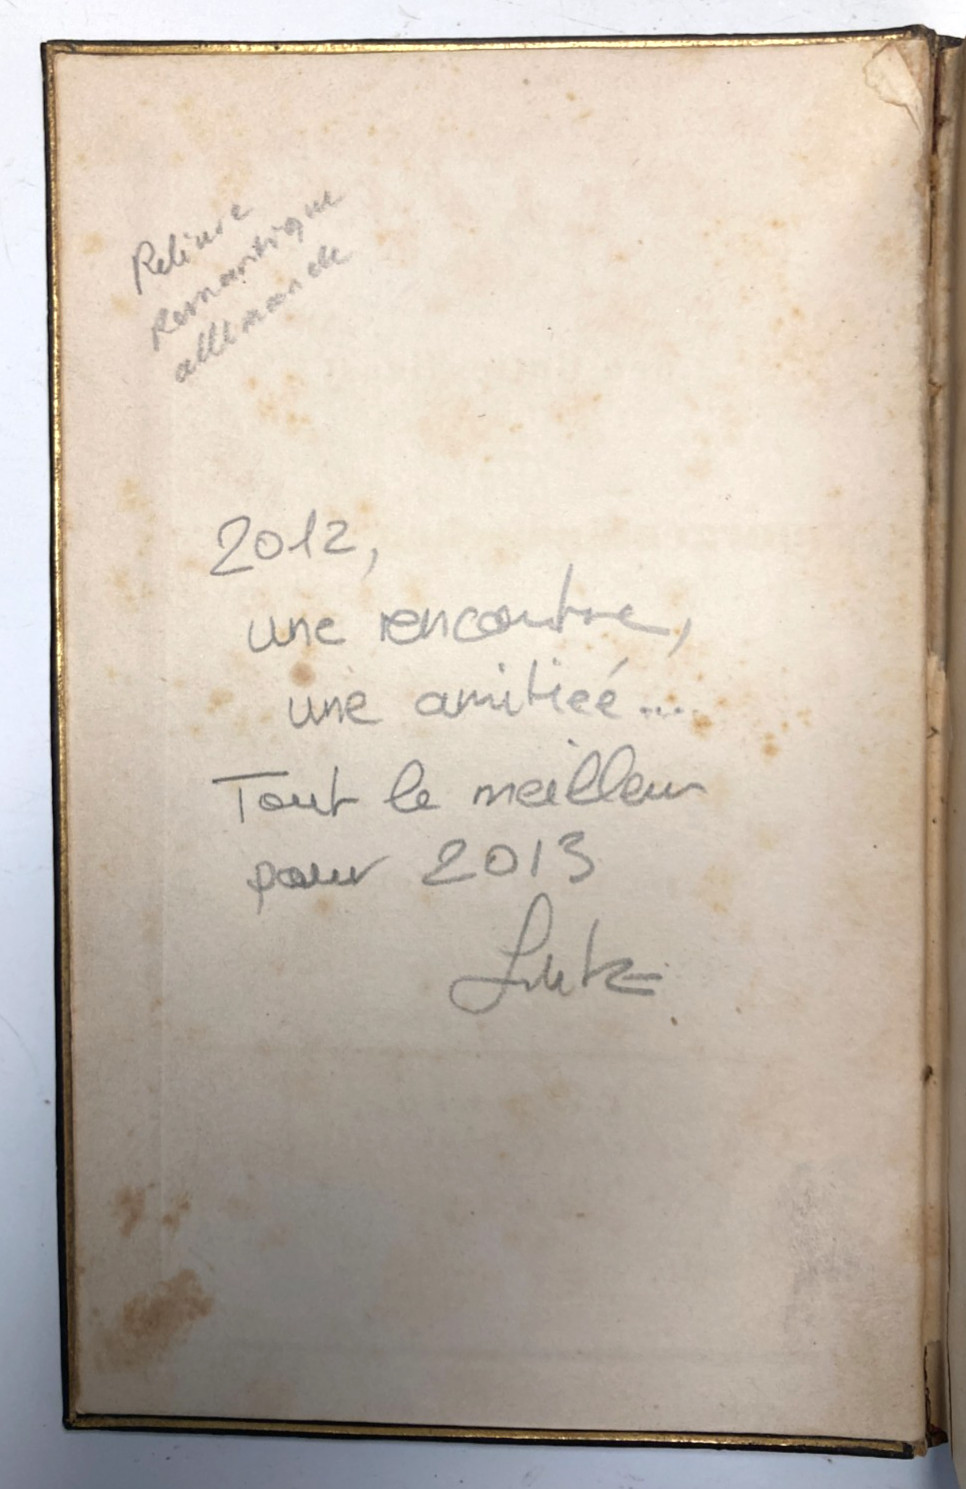 Reliure
Romantique
allemande
2012,
une rencontre,
une amitieé...
Tout le meilleur
pour 2013
Lutz